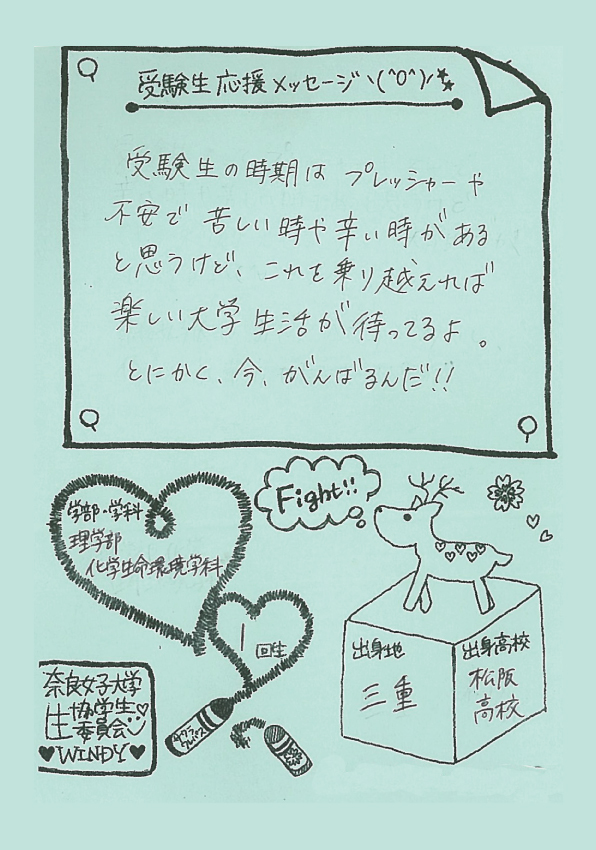 受験生応援メッセージヽ(^O^)ﾉ
受験生の時期は プレッシャーや
不安で 苦しい時や辛い時がある
と思うけど、これを乗り越えれば
楽しい大学生活が待ってるよ。
とにかく、今、がんばるんだ!!
Fight!!
学部・学科
理学部
化学生命環境学科
1回生
出身地
三重
出身高校
松阪
高校
奈良女子大学
生協学生
委員会
♥WINDY♥
サクラ
クレパス